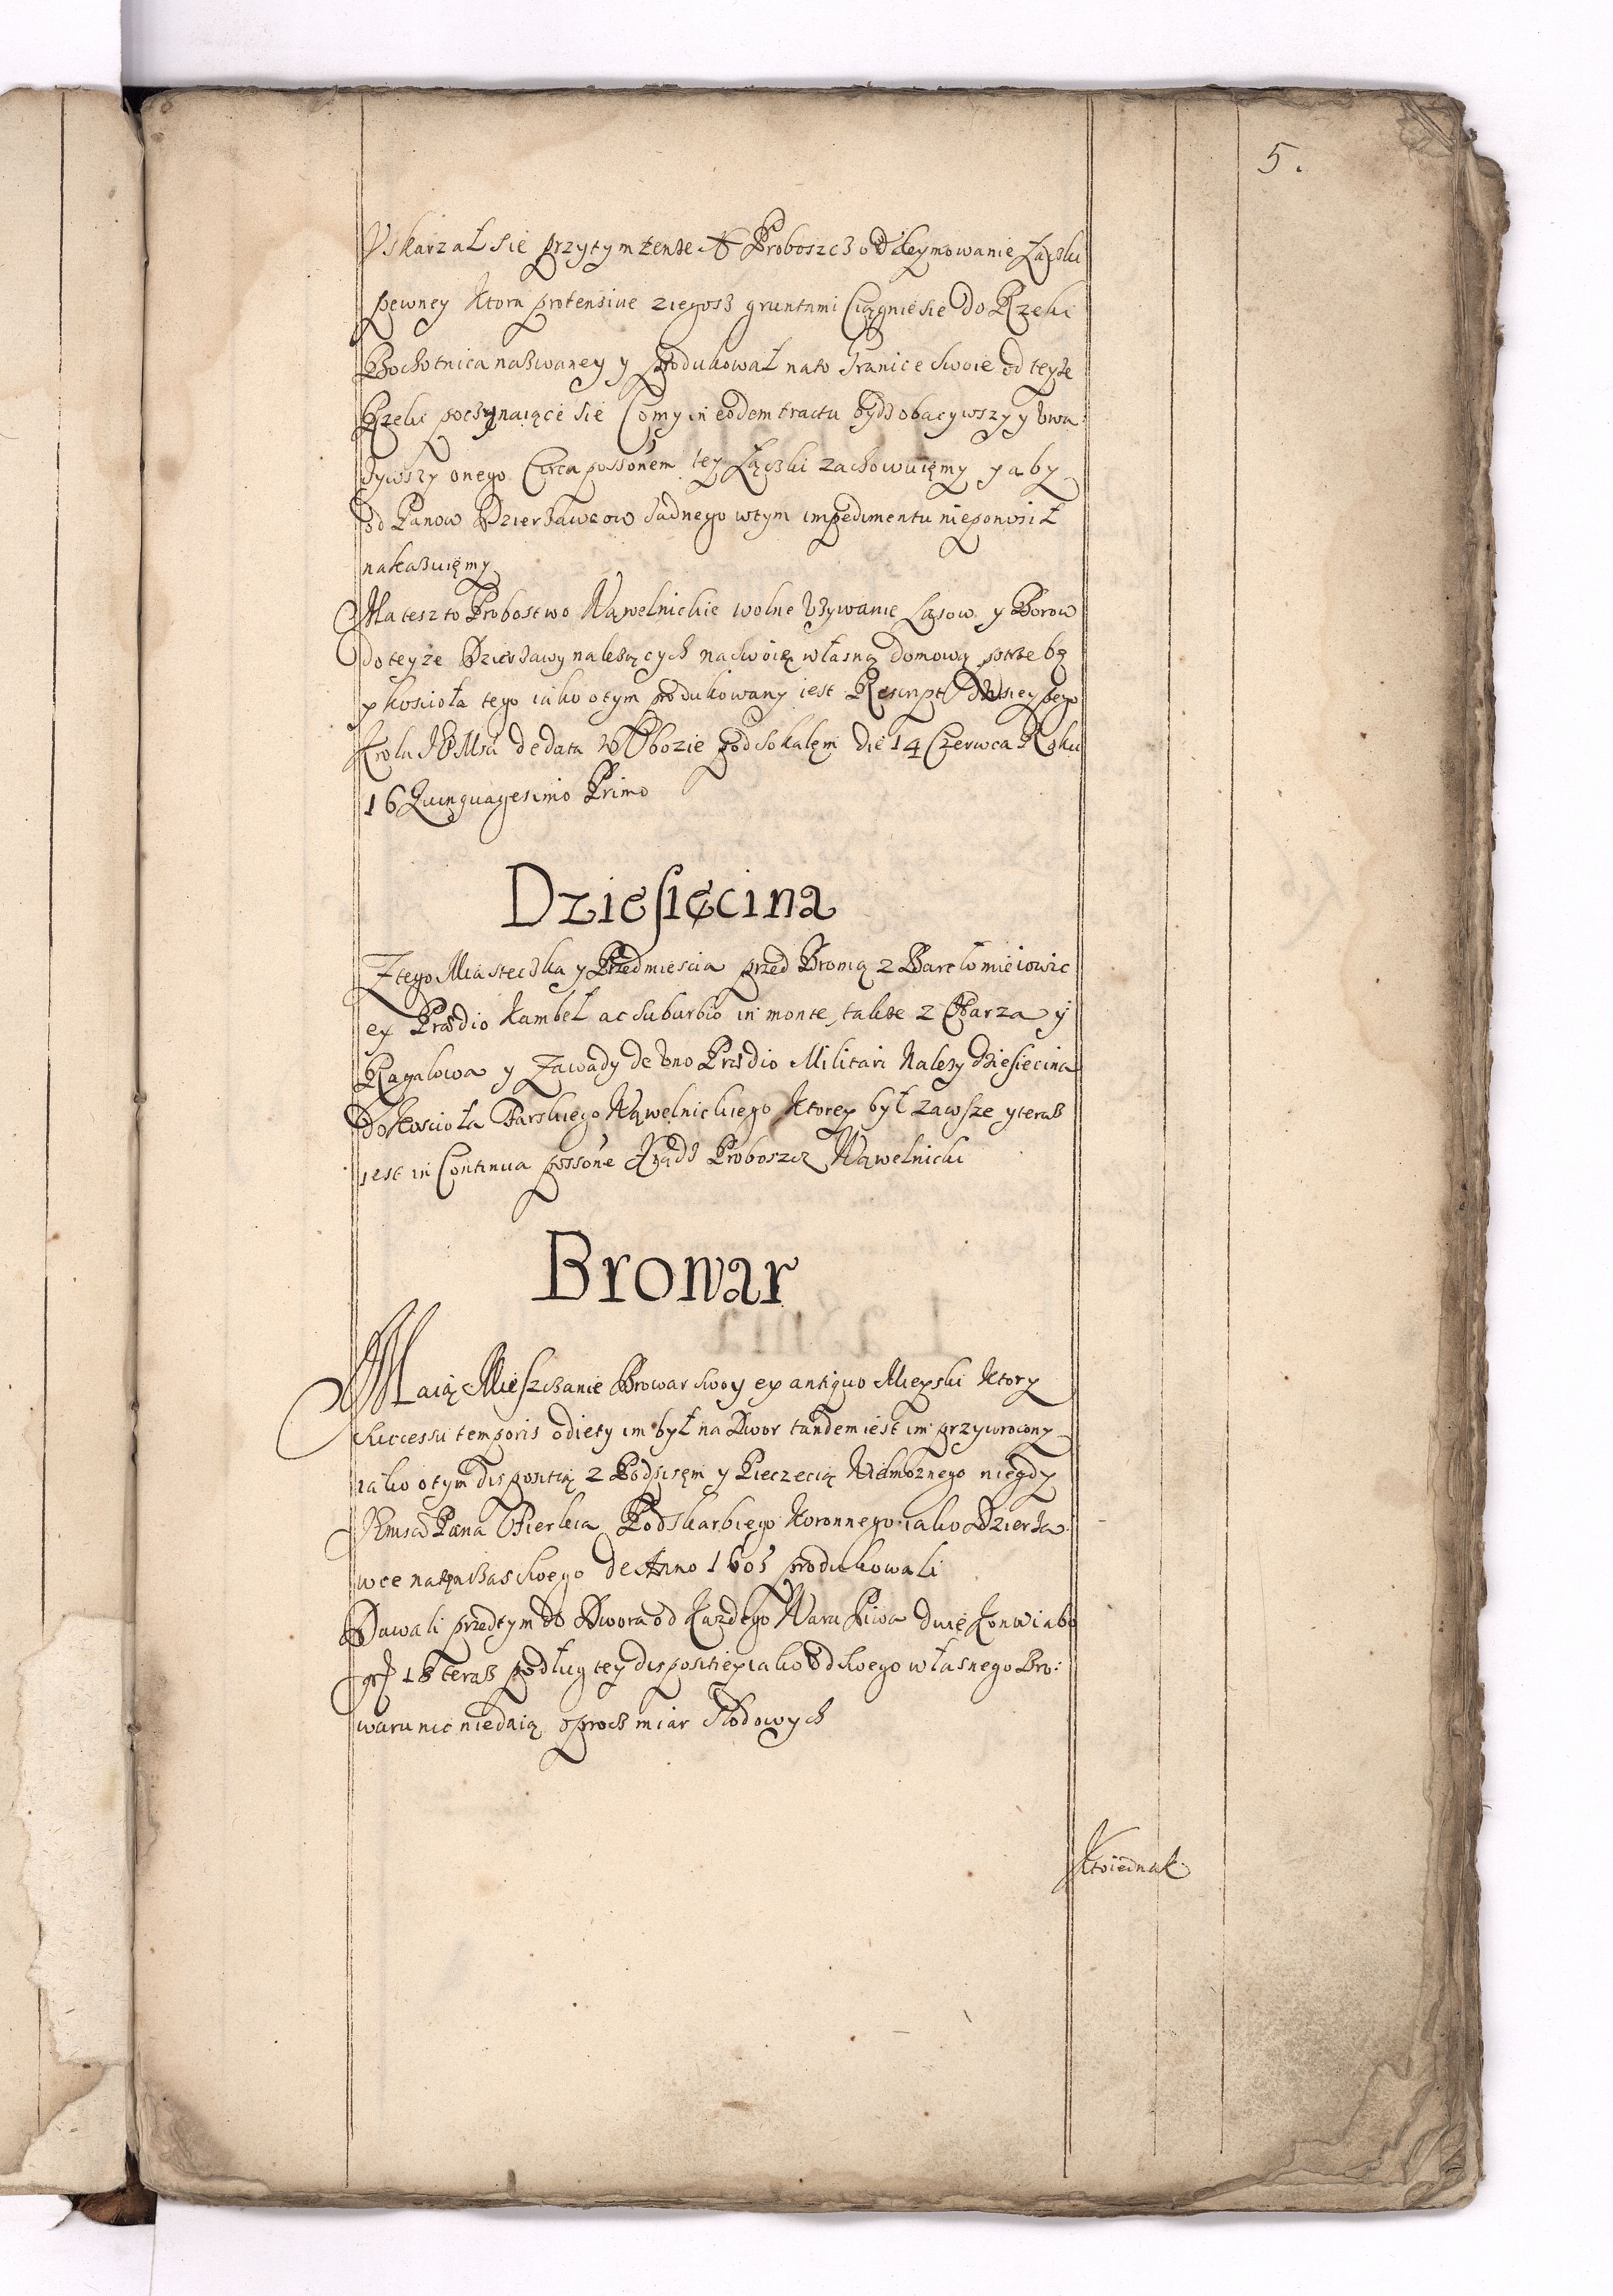 5.
Vskarzał sie przytym tenże X Proboszcz o Odeymowanie Łączki
pewney Ktora protensiue z iegosz gruntami Ciągnie sie do Rzeki
Bochotnica nazwaney y produkował na to Granice swoie od teyże
Rzeki poczynaiące sie Co my in eodem tractu bydz obaczywszy y vwa:
żywszy onego Circa possonem tey Łączki zachowuięmy y aby
od Panow Dzierżawcow żadnego wtym impedimentu nieponosił
nakazuięmy
Ma tesz to Probostwo Wąwelnickie wolne Vżywanie Lasow y Borow
do teyze Dzierżawy należących na swoię własną domową potrzebę
y koscioła tego iako otym produkowany iest Rescript
Krola JE Msci de data w Obozie pod Sokalęm die 14 Czerwca Roku
16 Quinquagesimo Primo
Dziesięcina
Z tego Miasteczka y Przedmiescia przed Bromą z Bartłomieiowic
ex Prædio Kambeł ac suburbio in monte, także z Charza y
Ragalowa y Zawady de vno Prædio Militari Należy dziesiecina
do Kosciola Farskiego Wąwelnickiego Ktorey był zawsze y teraz
iest in Continua possone Xiądz Proboszcz Wąwelnicki
Browar
Maią Mieszczanie Browar swoy ex antiquo Mieyski Ktory
successu temporis odiety im był na Dwor tandem iest im przywrocony
iako otym dispositią z Podpisęm y Pieczecią Wielmoznego niegdy
Jmsci Pana Firleia Podskarbiego Koronnego iako Dzierża:
wce natęnczas swoego de Anno 1605 produkowali
Dawali przedtym do Dwora od Każdego Waru Piwa dwie Konwi abo
gr 18 teraz podług tey dispositiey iako od swoego własnego Bro:
waru nic niedaią oprocz miar Słodowych
Ktoiednak